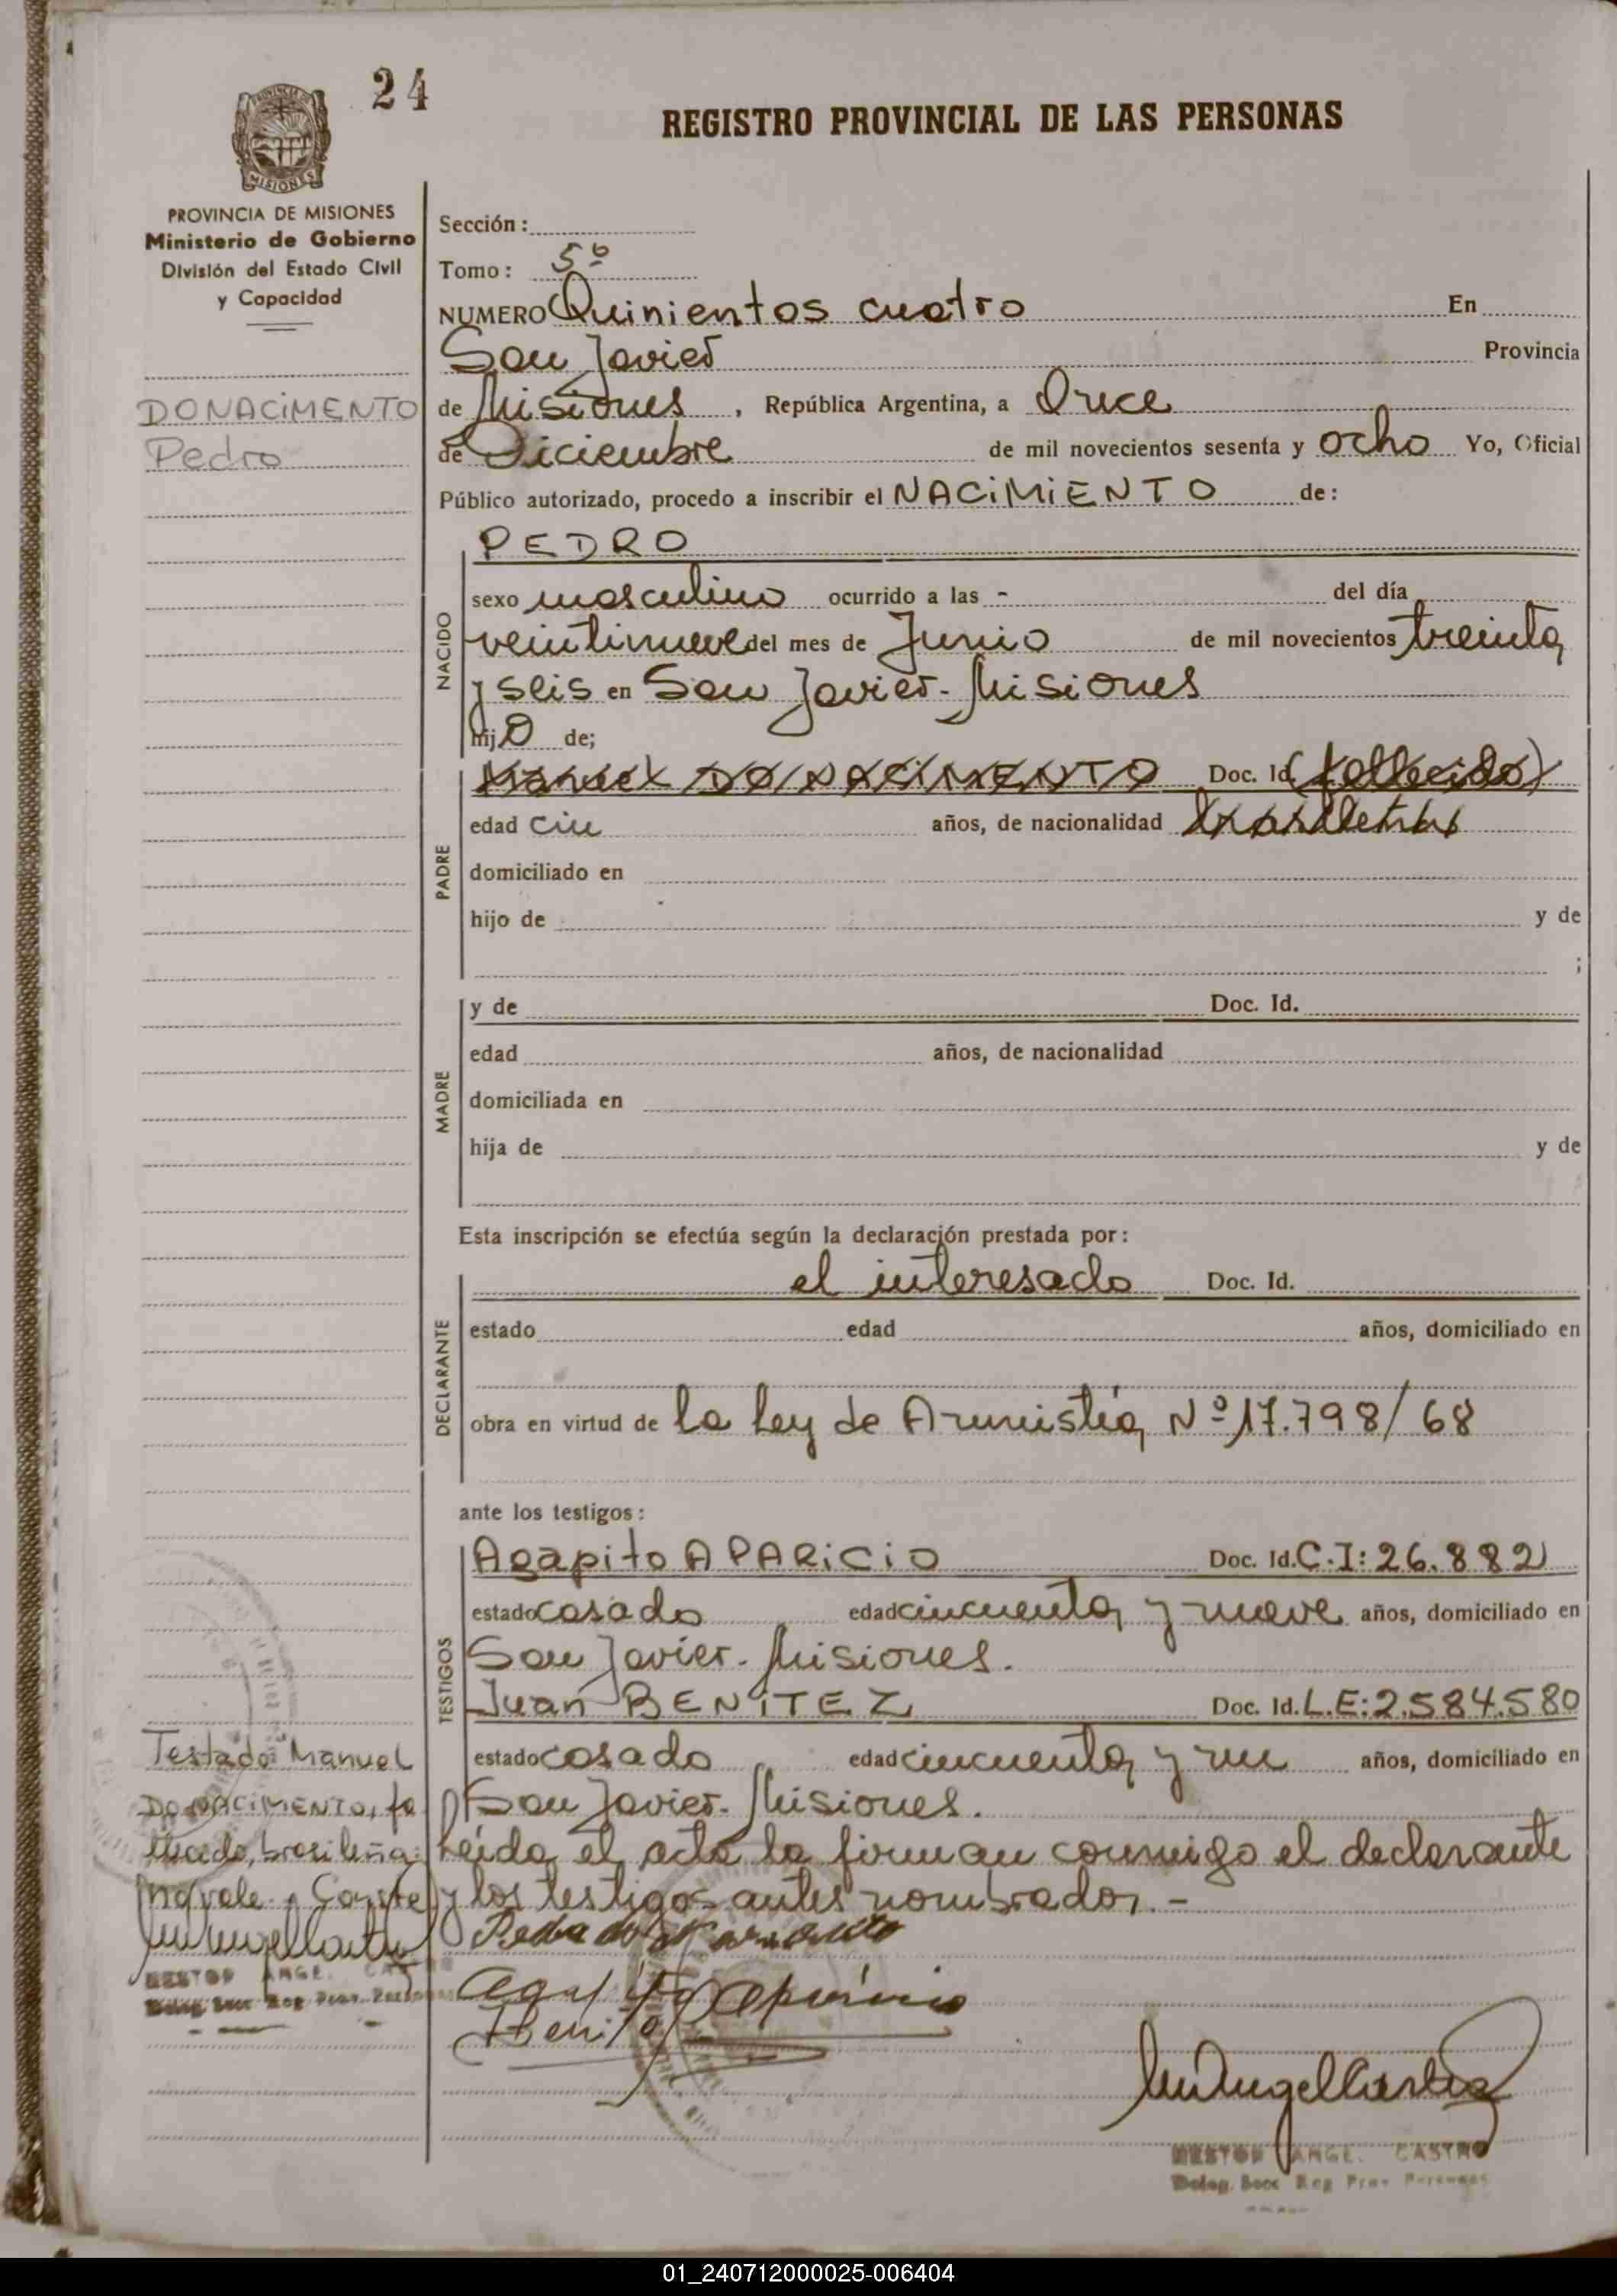 24
REGISTRO PROVINCIAL DE LAS PERSONAS
MISIONES
PROVINCIA DE MISIONES
Ministerio de Gobierno
División del Estado Civil
y Capacidad
DONACIMENTO
Pedro
Sección:
Tomo: 5º
NUMERO Quinientos cuatro En
San Javier Provincia
de Misiones, República Argentina, a Once
de Diciembre de mil novecientos sesenta y ocho Yo, Oficial
Público autorizado, procedo a inscribir el NACIMIENTO de:
NACIDO
PEDRO
sexo masculino ocurrido a las - del día
veintinueve del mes de Junio de mil novecientos treinta
y seis en San Javier - Misiones
hijo de;
PADRE
Manuel DO NACIMENTO Doc. Id. (fallecido)
edad años, de nacionalidad
domiciliado en
hijo de y de
;
MADRE
y de Doc. Id.
edad años, de nacionalidad
domiciliada en
hija de y de
Esta inscripción se efectúa según la declaración prestada por:
DECLARANTE
el interesado Doc. Id.
estado edad años, domiciliado en
obra en virtud de la Ley de Amnistía Nº 17.798/68
ante los testigos:
TESTIGOS
Agapito APARICIO Doc. Id. C.I: 26.882
estado casado edad cincuenta y nueve años, domiciliado en
San Javier - Misiones.
Juan BENITEZ Doc. Id. L.E: 2.584.580
estado casado edad cincuenta y un años, domiciliado en
San Javier - Misiones.
Leída el acta la firman conmigo el declarante
y los testigos antes nombrados. -
Testado: Manuel
DO NACIMENTO, fa
no vale
Agapito Aparicio
Benitez
NESTOR ANGEL CASTRO
Deleg. Secc Reg Prov Personas
NESTOR ANGEL CASTRO
Deleg. Secc Reg Prov Personas
01_240712000025-006404